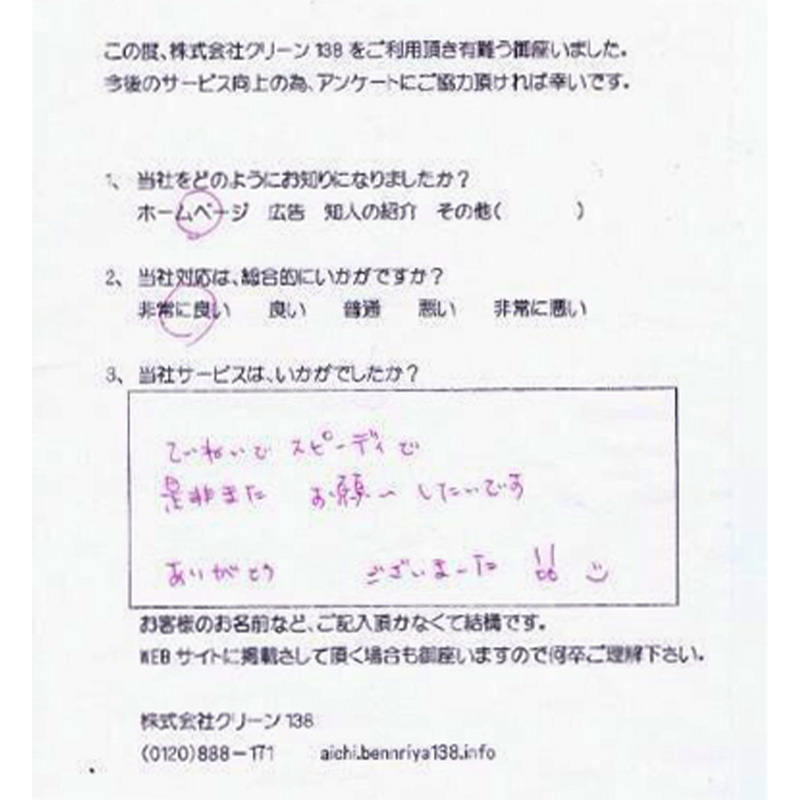 この度、株式会社クリーン138をご利用頂き有難う御座いました。
今後のサービス向上の為、アンケートにご協力頂ければ幸いです。
1、当社をどのようにお知りになりましたか？
ホームページ 広告 知人の紹介 その他( )
2、当社対応は、総合的にいかがですか？
非常に良い 良い 普通 悪い 非常に悪い
3、当社サービスは、いかがでしたか？
ていねいで スピーディで
是非また お願いしたいです
ありがとう ございました!!
お客様のお名前など、ご記入頂かなくて結構です。
WEBサイトに掲載さして頂く場合も御座いますので何卒ご理解下さい。
株式会社クリーン138
(0120)888-171 aichi.bennriya138.info